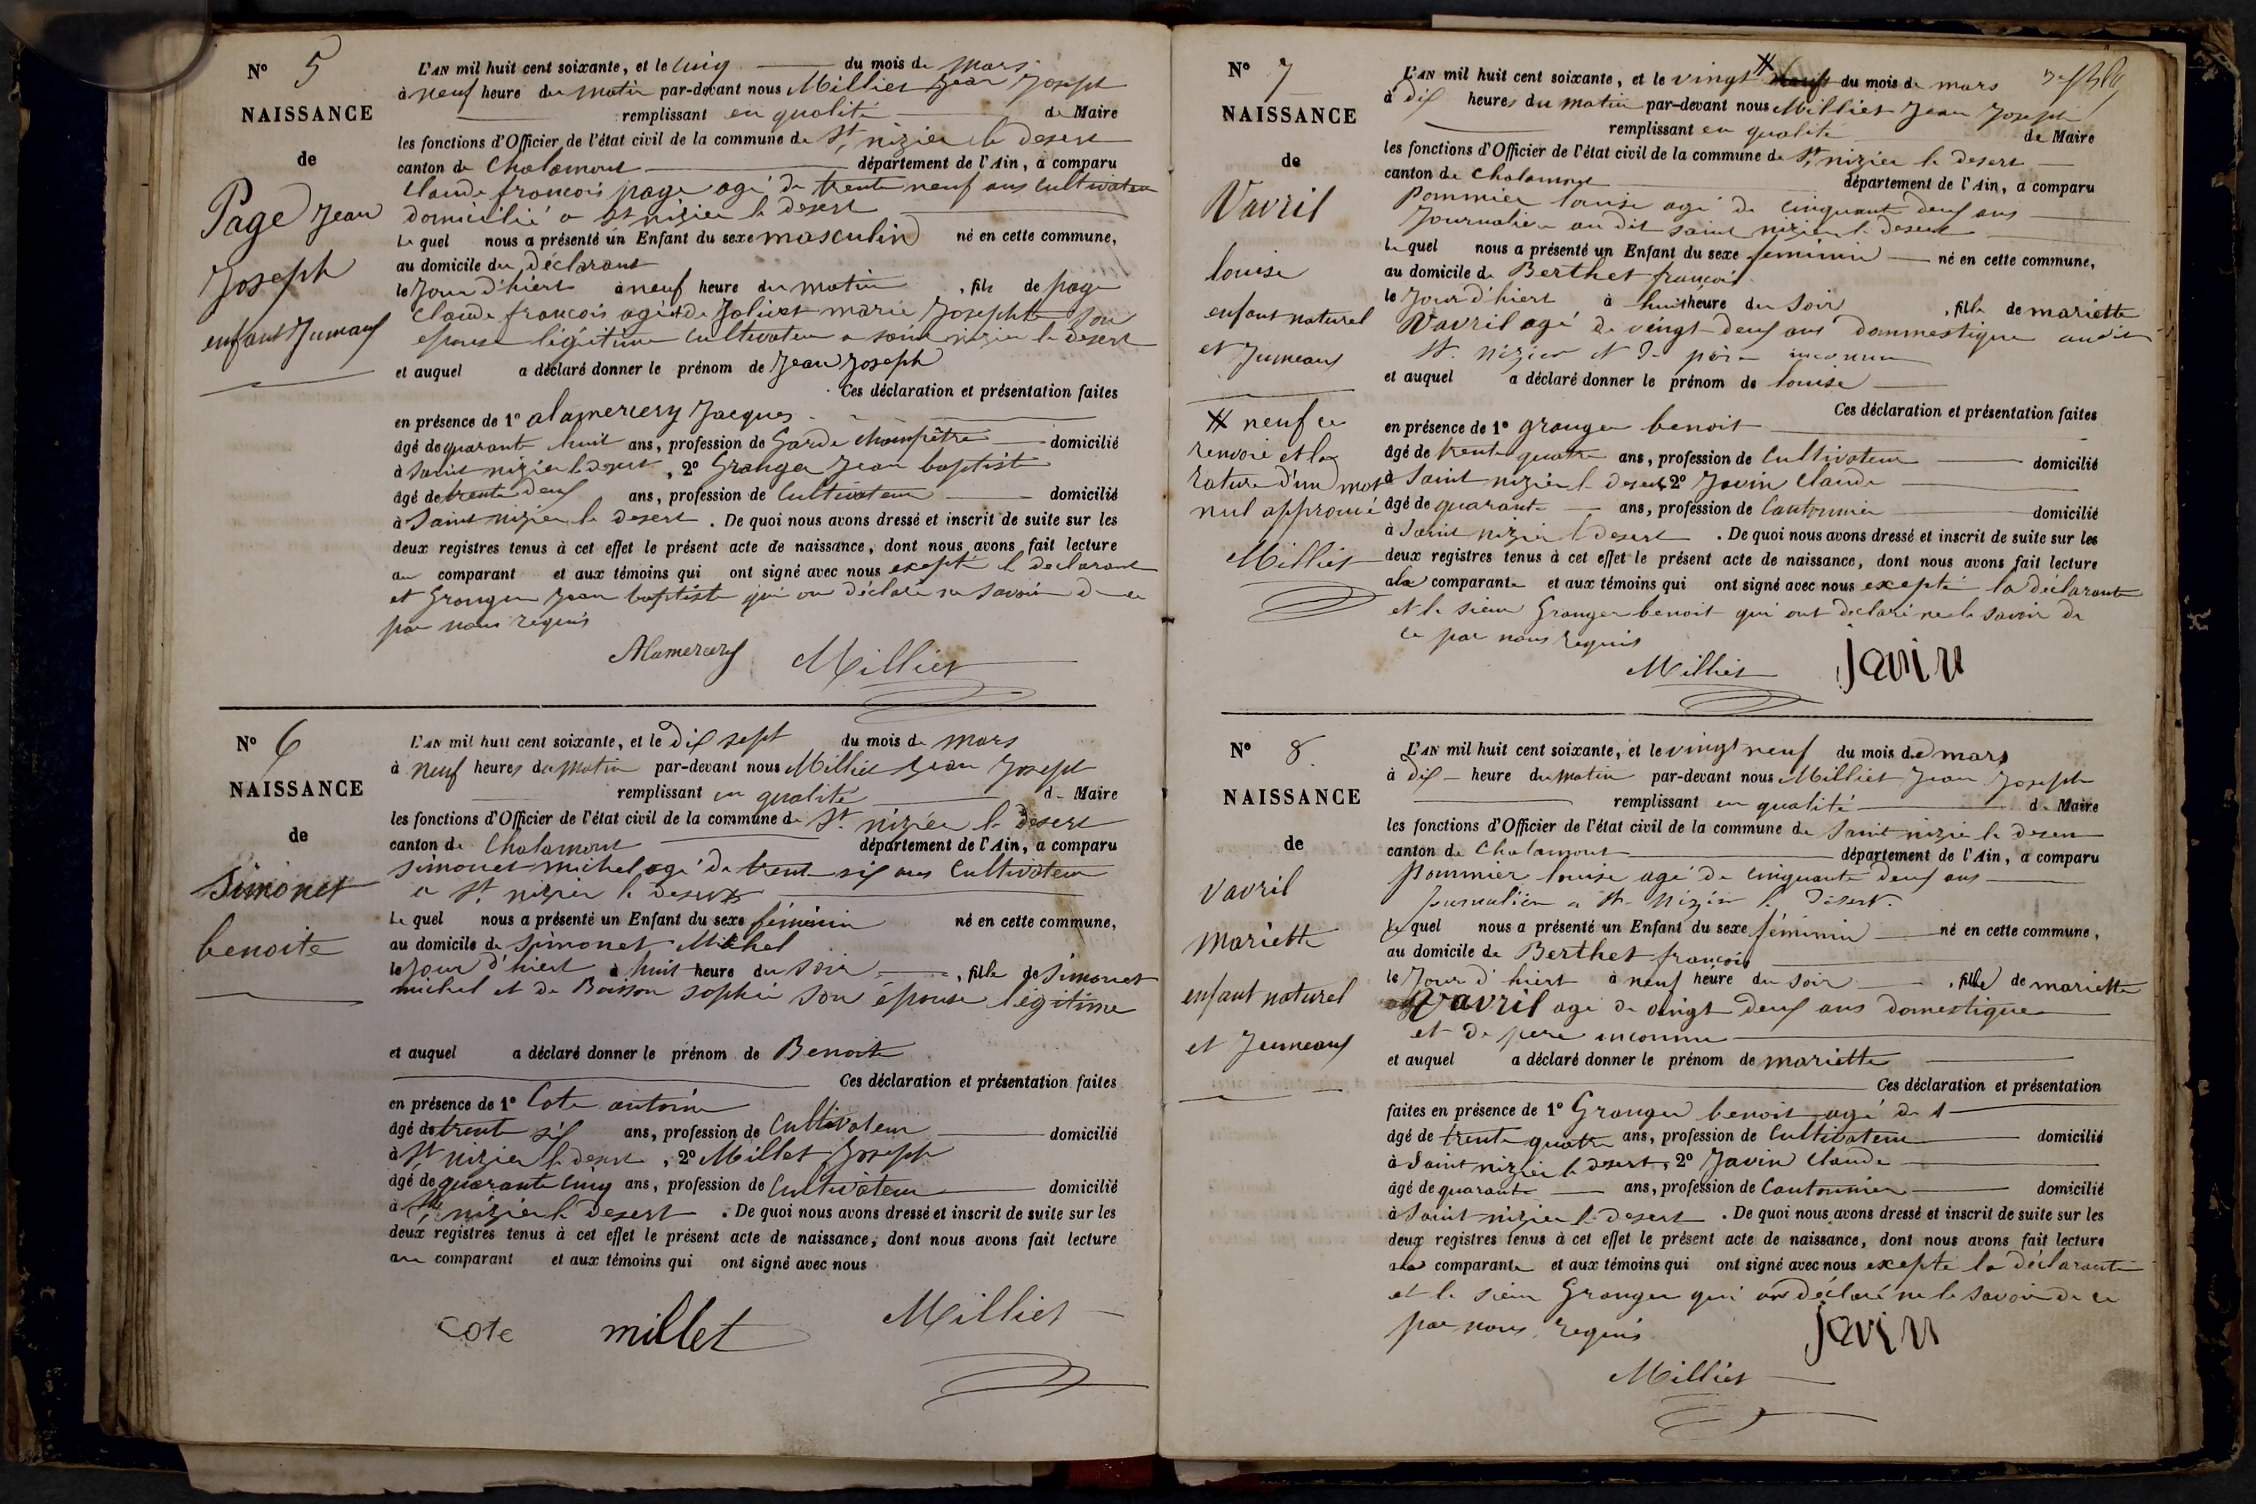 N° 5
NAISSANCE
de
Page Jean
Joseph
enfant Jumeaux
L'AN mil huit cent soixante, et le cinq du mois de mars
à neuf heure du matin par-devant nous Milliet Jean Joseph
remplissant en qualité de Maire
les fonctions d'Officier de l'état civil de la commune de St nizier le desert
canton de Chalamont département de l'Ain, a comparu
Claude françois page agé de trente neuf ans Cultivateur
domicilié a St nizier le desert
Le quel nous a présenté un Enfant du sexe masculin né en cette commune,
au domicile du déclarant
le Jour d'hiert à neuf heure du matin , fils de page
Claude francois agé et de Joliet marie Josephte son
epouse légitime Cultivateur a saint nizier le desert
et auquel a déclaré donner le prénom de Jean Joseph
Ces déclaration et présentation faites
en présence de 1° alamercery Jacques
âgé de quarante huit ans, profession de Garde champêtre domicilié
à Saint nizier le desert , 2° Granger Jean baptiste
âgé de trente deux ans, profession de Cultivateur domicilié
à Saint nizier le desert . De quoi nous avons dressé et inscrit de suite sur les
deux registres tenus à cet effet le présent acte de naissance, dont nous avons fait lecture
au comparant et aux témoins qui ont signé avec nous excepté le declarant
et Granger Jean baptiste qui on déclaré ne savoir de ce
par nous requis
Alamercery Milliet
N° 6
NAISSANCE
de
Simonet
benoite
L'AN mil huit cent soixante, et le dix sept du mois de mars
à neuf heures du matin par-devant nous Milliet Jean Joseph
remplissant en qualité de Maire
les fonctions d'Officier de l'état civil de la commune de St. nizier le desert
canton de Chalamont département de l'Ain, a comparu
Simonet michel agé de trente six ans Cultivateur
a St. nizier le desert
Le quel nous a présenté un Enfant du sexe féminin né en cette commune,
au domicile de Simonet Michel
le Jour d'hiert à huit heure du soir , fille de Simonet
michel et de Boisson sophie son épouse légitime
et auquel a déclaré donner le prénom de Benoite
Ces déclaration et présentation faites
en présence de 1° Cote antoine
âgé de trente six ans, profession de Cultivateur domicilié
à St nizier le desert , 2° Millet Joseph
âgé de quarante cinq ans, profession de Cultivateur domicilié
à St. nizier le desert . De quoi nous avons dressé et inscrit de suite sur les
deux registres tenus à cet effet le présent acte de naissance, dont nous avons fait lecture
au comparant et aux témoins qui ont signé avec nous
Cote millet Milliet
N° 7
NAISSANCE
de
Vavril
louise
enfant naturel
et Jumeaux
# neuf ce
renvoi et la
rature d'un mot
nul approuvé
Milliet
L'AN mil huit cent soixante, et le vingt # du mois de mars
à dix heures du matin par-devant nous Milliet Jean Joseph
remplissant en qualité de Maire
les fonctions d'Officier de l'état civil de la commune de St nizier le desert
canton de Chalamont département de l'Ain, a comparu
Pommier louise agé de cinquante deux ans
Journalière au dit saint nizier le desert
Le quel nous a présenté un Enfant du sexe feminin né en cette commune,
au domicile de Berthet francois
le Jour d'hiert à huit heure du soir , fille de mariette
Vavril agé de vingt deux ans dommestique audit
St. nizier et de père inconnu
et auquel a déclaré donner le prénom de louise
Ces déclaration et présentation faites
en présence de 1° granger benoit
âgé de trente quatre ans, profession de Cultivateur domicilié
à Saint nizier le desert 2° Javin Claude
âgé de quarante ans, profession de Cantonnier domicilié
à Saint nizier le desert . De quoi nous avons dressé et inscrit de suite sur les
deux registres tenus à cet effet le présent acte de naissance, dont nous avons fait lecture
a la comparante et aux témoins qui ont signé avec nous excepté la déclarante
et le sieur Granger benoit qui ont déclaré ne le savoir de
ce par nous requis
Milliet Javin
N° 8
NAISSANCE
de
Vavril
mariette
enfant naturel
et Jumeaux
L'AN mil huit cent soixante, et le vingt neuf du mois de mars
à dix heure du matin par-devant nous Milliet Jean Joseph
remplissant en qualité de Maire
les fonctions d'Officier de l'état civil de la commune de Saint nizier le desert
canton de Chalamont département de l'Ain, a comparu
Pommier louise agé de cinquante deux ans
journalière a St. Nizier le Désert.
Le quel nous a présenté un Enfant du sexe féminin né en cette commune,
au domicile de Berthet françois
le Jour d'hiert à neuf heure du soir , fille de mariette
Vavril agé de vingt deux ans domestique
et de pere inconnu
et auquel a déclaré donner le prénom de mariette
Ces déclaration et présentation
faites en présence de 1° Granger benoit agé de 1
âgé de trente quatre ans, profession de Cultivateur domicilié
à Saint nizier le desert , 2° Javin Claude
âgé de quarante ans, profession de Cantonnier domicilié
à Saint nizier le desert . De quoi nous avons dressé et inscrit de suite sur les
deux registres tenus à cet effet le présent acte de naissance, dont nous avons fait lecture
a la comparante et aux témoins qui ont signé avec nous excepté la déclarante
et le sieur Granger qui on déclaré ne le savoir de ce
par nous requis
Javin
Milliet